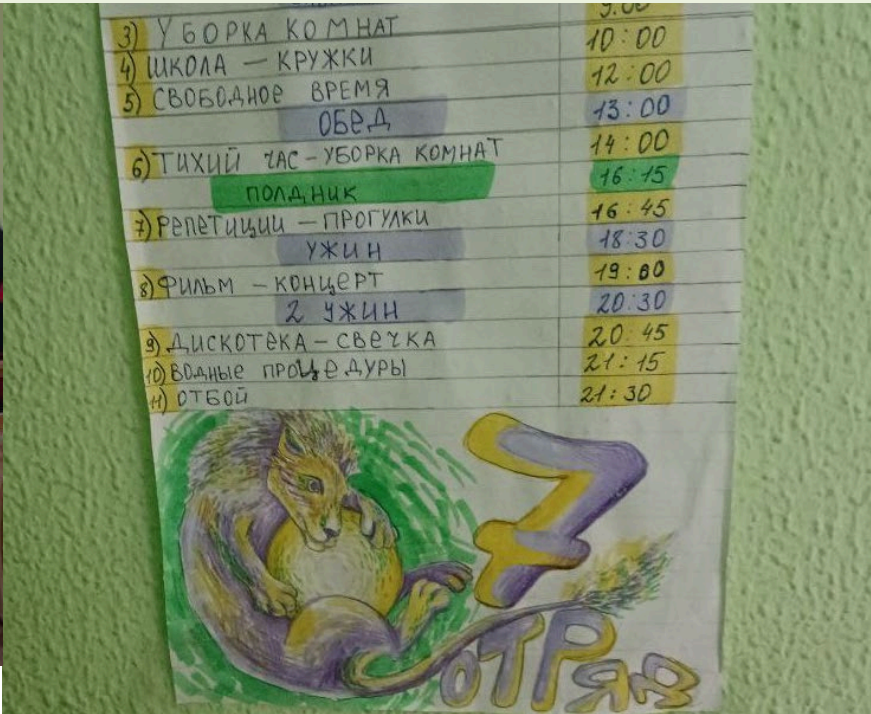 9:00
3) УБОРКА КОМНАТ 10:00
4) ШКОЛА – КРУЖКИ 12:00
5) СВОБОДНОЕ ВРЕМЯ
ОБЕД 13:00
6) ТИХИЙ ЧАС – УБОРКА КОМНАТ 14:00
ПОЛДНИК 16:15
7) РЕПЕТИЦИИ – ПРОГУЛКИ 16:45
УЖИН 18:30
8) ФИЛЬМ – КОНЦЕРТ 19:00
2 УЖИН 20:30
9) ДИСКОТЕКА – СВЕЧКА 20:45
10) ВОДНЫЕ ПРОЦЕДУРЫ 21:15
11) ОТБОЙ 21:30
7
ОТРЯД